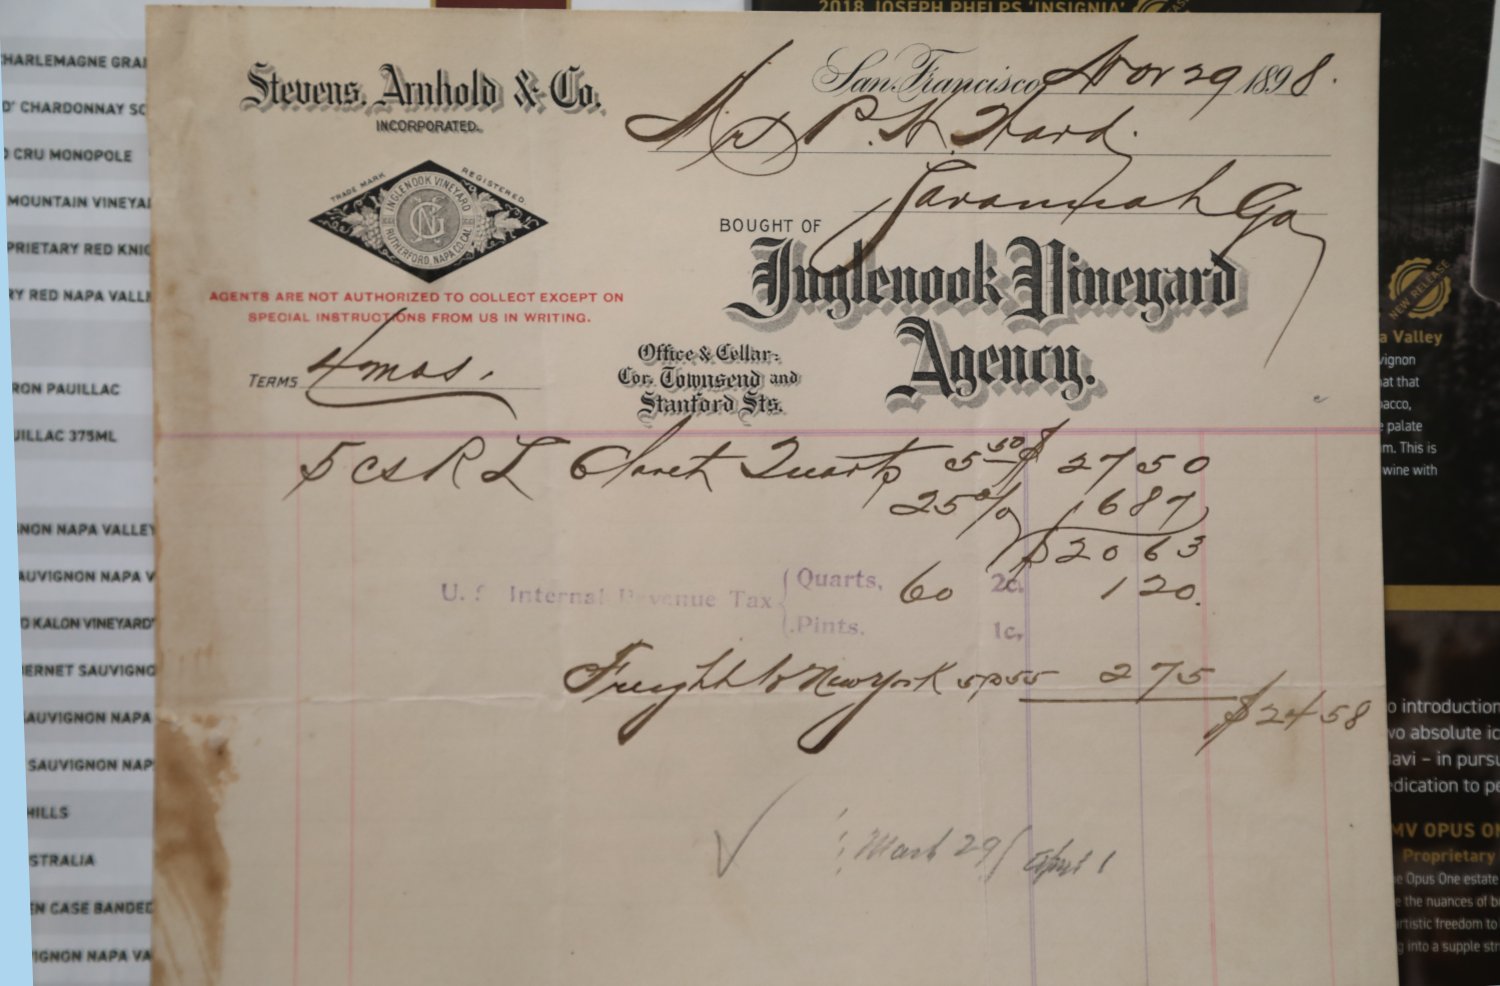 2018 JOSEPH PHELPS 'INSIGNIA'
Stevens, Arnhold & Co.
INCORPORATED.
San Francisco, Nov 29 1898.
Mr P. H. Ward.
Savannah Ga
TRADE MARK REGISTERED.
INGLENOOK VINEYARD
RUTHERFORD, NAPA CO. CAL.
BOUGHT OF
Inglenook Vineyard
Agency.
AGENTS ARE NOT AUTHORIZED TO COLLECT EXCEPT ON
SPECIAL INSTRUCTIONS FROM US IN WRITING.
TERMS 4 mos.
Office & Cellar:
Cor. Townsend and
Stanford Sts.
5 cs R L Claret Quarts 5.50 $ 27 50
25% 6 87
$20 63
U. S. Internal Revenue Tax { Quarts, 60 2c. 1 20.
Pints. 1c.
Freight to New York 5 @ 55 2 75
$24 58
Mark 29/ April 1
CHARLEMAGNE GRA
D' CHARDONNAY SC
CRU MONOPOLE
MOUNTAIN VINEYA
PRIETARY RED KNIG
RY RED NAPA VALL
RON PAUILLAC
UILLAC 375ML
NON NAPA VALLEY
AUVIGNON NAPA V
KALON VINEYARD'
ERNET SAUVIGNO
AUVIGNON NAPA
SAUVIGNON NAP
HILLS
STRALIA
EN CASE BANDED
IGNON NAPA VA
NEW RELEASE
a Valley
vignon
at that
acco,
palate
m. This is
wine with
o introduction
wo absolute ic
lavi – in pursu
dication to pe
MV OPUS O
Proprietary
e Opus One estate
e the nuances of b
rtistic freedom to
g into a supple str